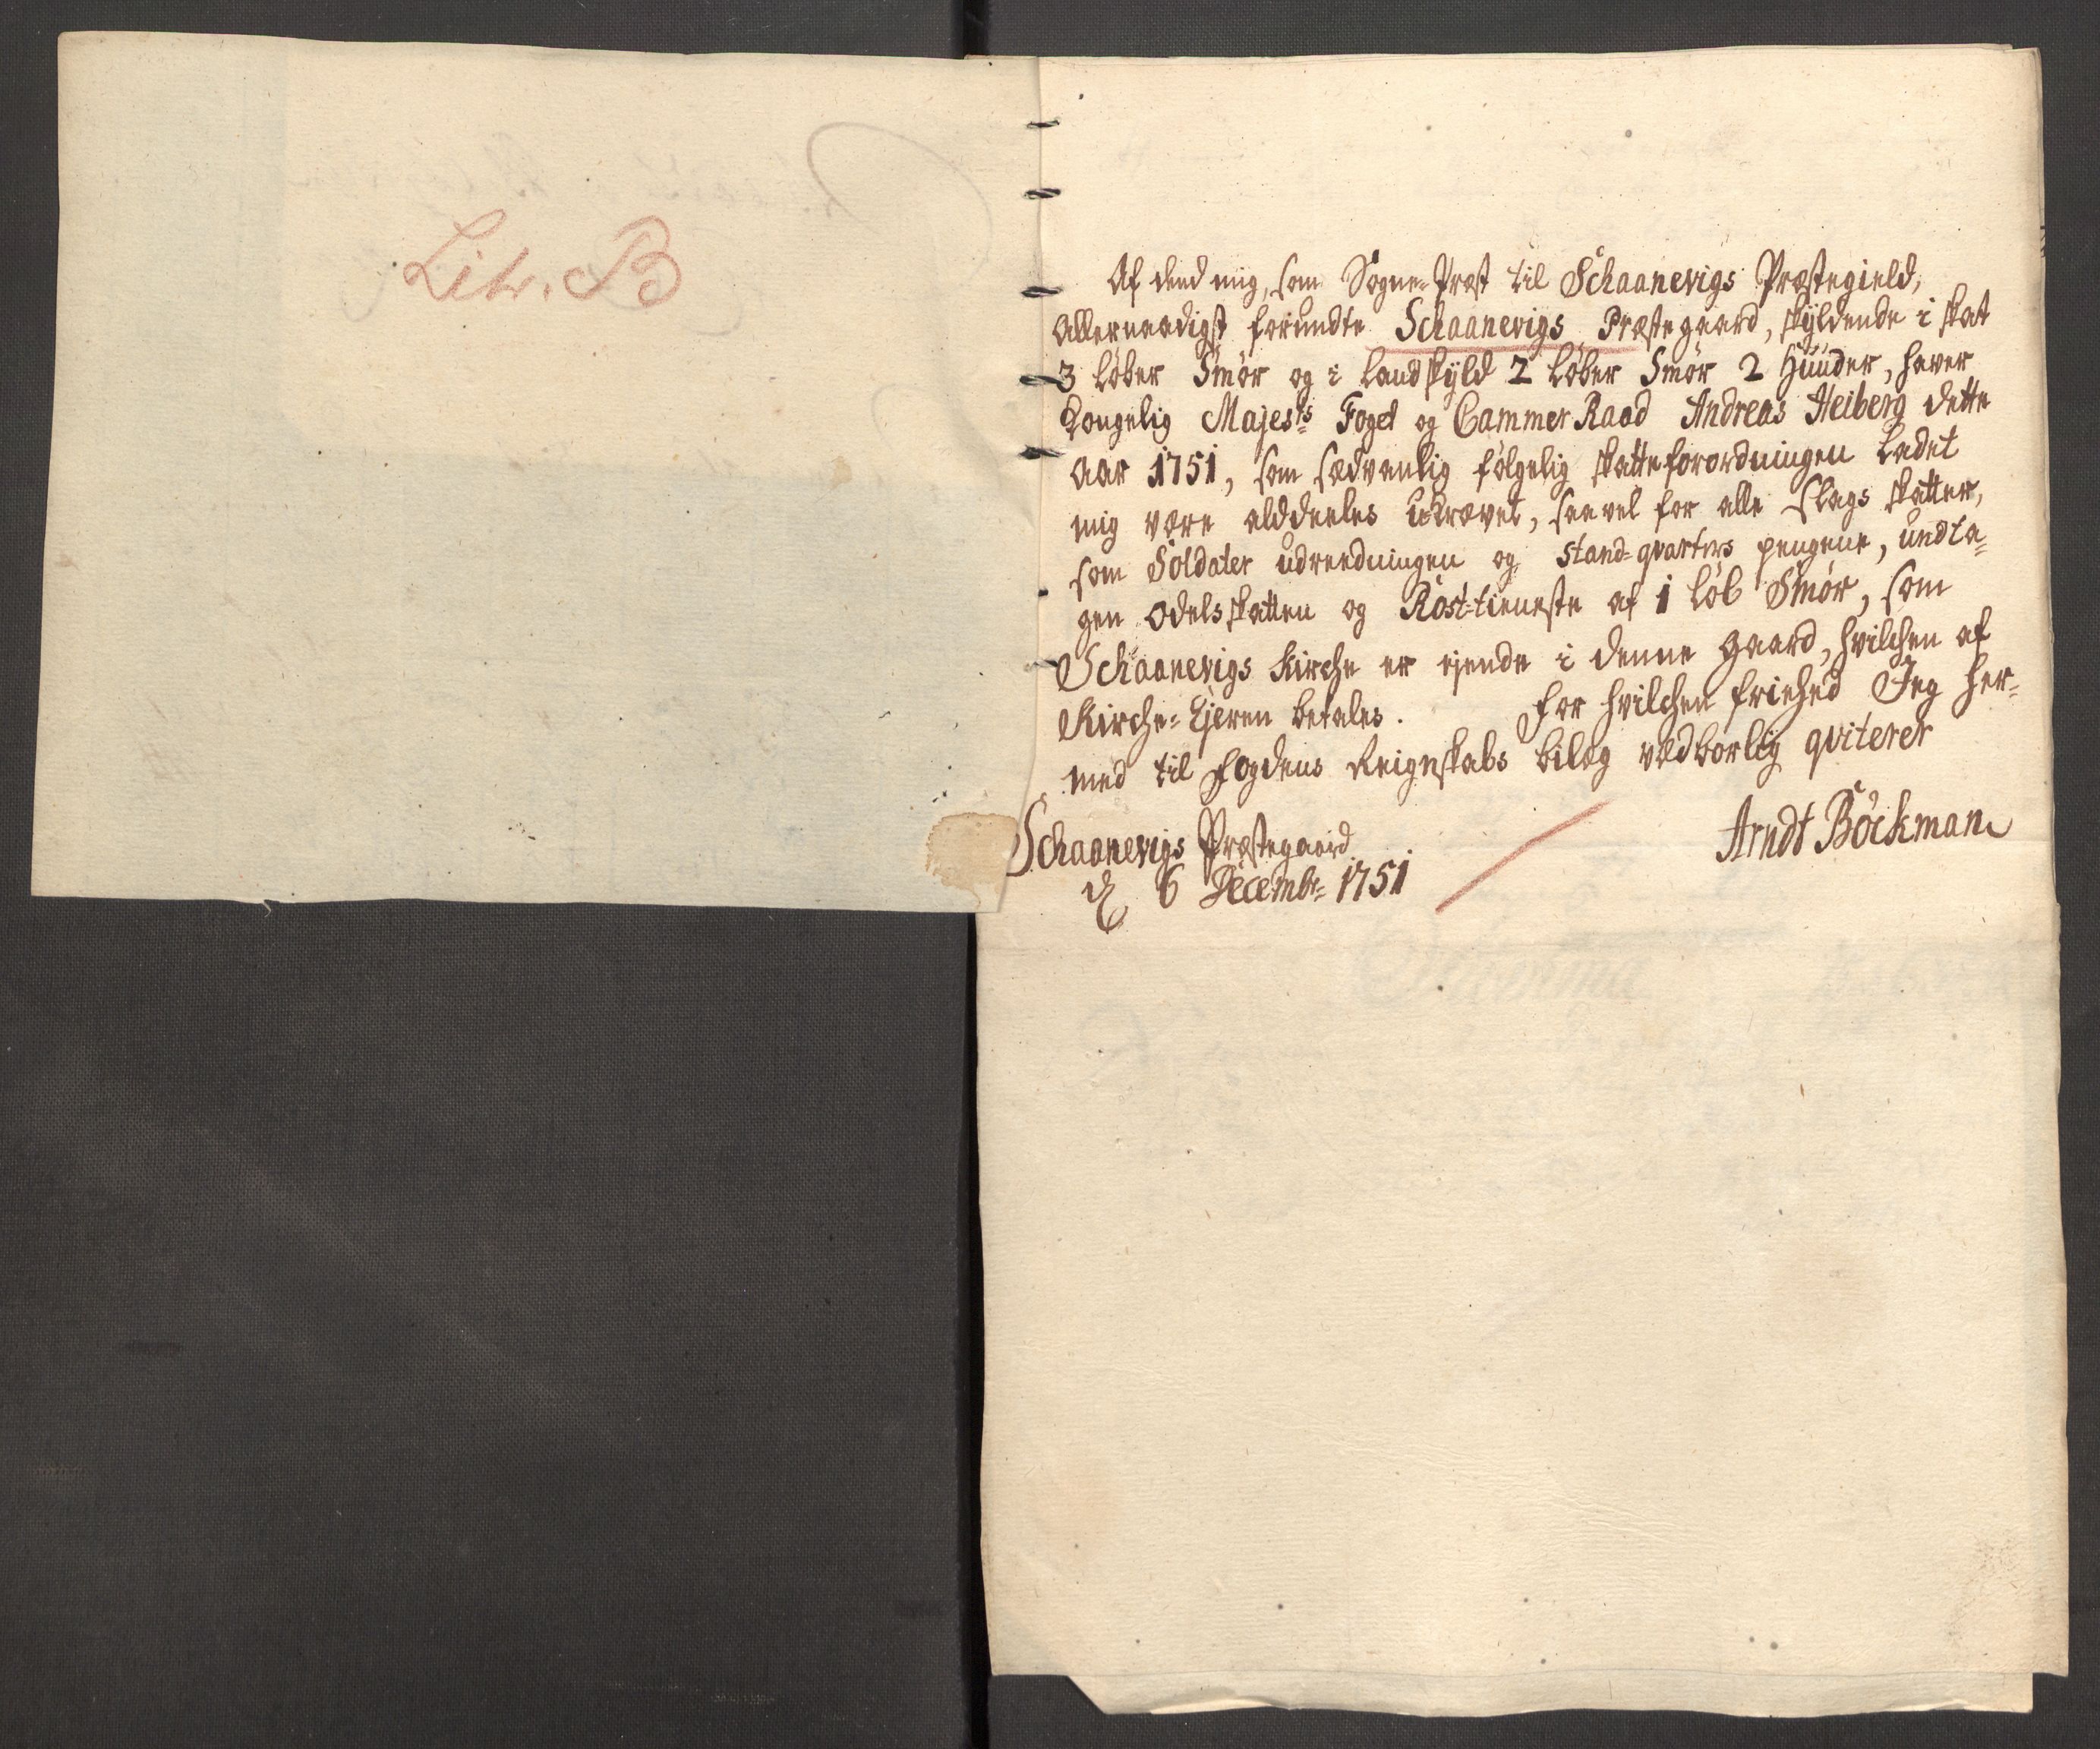 Litr. B
Af dend mig, som Sogne-Præst til Schaanevigs Præstegield,
Allernaadigst forundte Schaanevigs Præstegaard, skyldende i skat
3 Løber Smør og i Landskyld 2 Løber Smør 2 Huuder, haver
Kongelig Majests Foged og Cammer Raad Andreas Heiberg dette
Aar 1751, som sædvanlig følgelig skatteforordningen Ladet
mig være alddeeles ukrævet, saavel for alle slags skatter,
som Soldater udreedningen og stand-qvarters pengene, undta-
gen Odelsskatten og Rost-tieneste af 1 Løb Smør, som
Schaanevigs Kirche er ejende i denne gaard, hvilchen af
Kirche-Ejeren betales. For hvilchen friehed Jeg her-
med til Fogdens Reignskabs bilag vedbørlig qviterer
Schaanevigs Præstegaard
d 6 Decembr 1751
Arndt Böckman